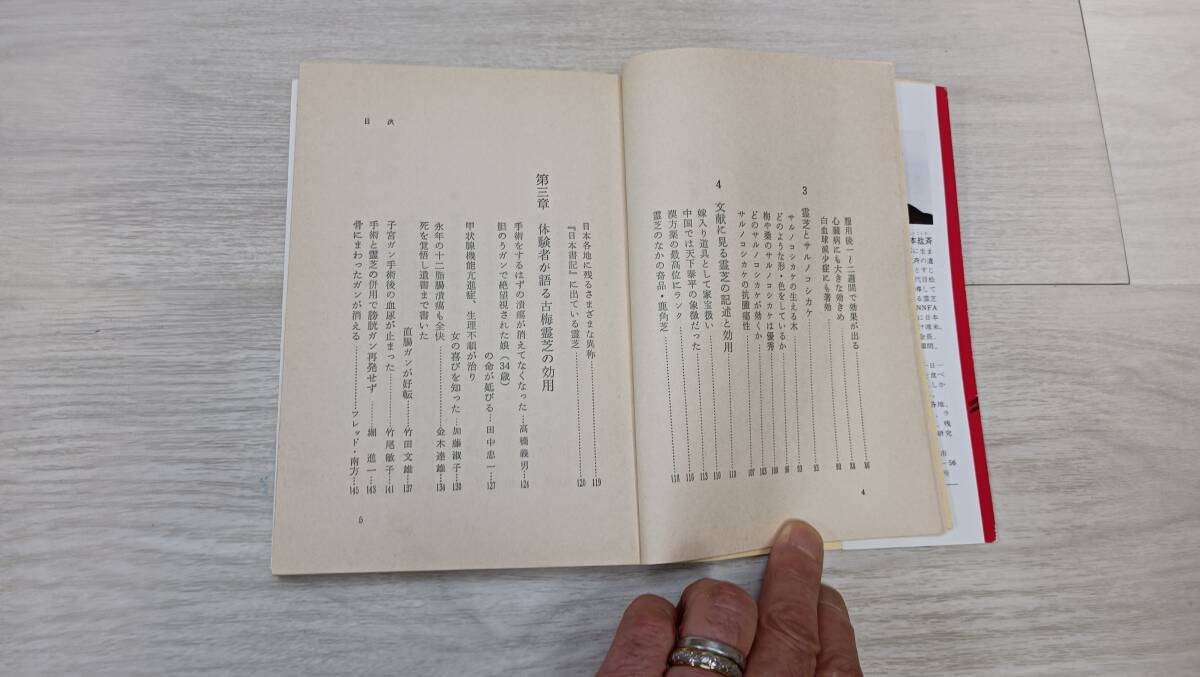 服用後一~二週間で効果が出る……86
心臓病にも大きな効きめ……88
白血球減少症にも著効……90
3 霊芝とサルノコシカケ……93
サルノコシカケの生える木……93
どのような形・色をしているか……96
梅や桑のサルノコシカケは優秀……100
どのサルノコシカケが効くか……103
サルノコシカケの抗腫瘍性……107
4 文献に見る霊芝の記述と効用……110
嫁入り道具として家宝扱い……113
中国では天下泰平の象徴だった……116
漢方薬の最高位にランク
霊芝のなかの奇品・鹿角芝……118
4
日本各地に残るさまざまな異称……119
『日本書記』に出ている霊芝……120
第三章 体験者が語る古梅霊芝の効用
手術をするはずの潰瘍が消えてなくなった…高橋義男…124
胆のうガンで絶望視された娘(34歳)
の命が延びる…田中忠一…127
甲状腺機能亢進症、生理不順が治り
女の喜びを知った…加藤淑子…130
永年の十二指腸潰瘍も全快……金木達雄…134
死を覚悟し遺書まで書いた
直腸ガンが好転……竹田文雄…137
子宮ガン手術後の血尿が止まった……竹尾敏子…141
手術と霊芝の併用で膀胱ガン再発せず……進一…143
骨にまわったガンが消える……フレッド・南方…145
目次
5
本紘斉
NNFA
に日本
け渡米。
会長、
顧問、
各地、
研究
市
－56
号